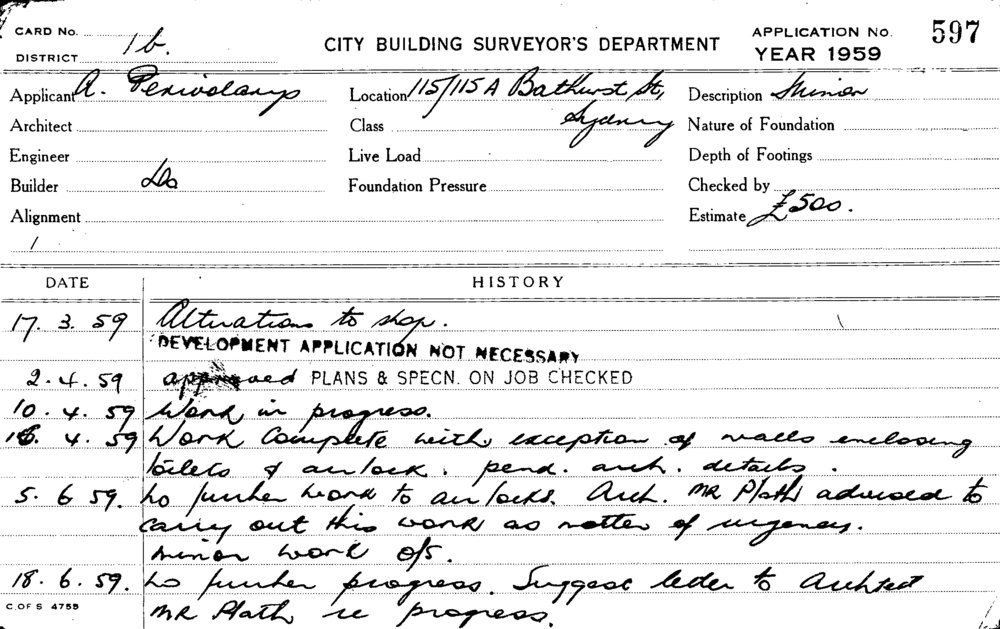 CARD No.
DISTRICT 1b.
CITY BUILDING SURVEYOR'S DEPARTMENT
APPLICATION No. 597
YEAR 1959
Applicant A. Perivolarys
Location 115/115A Bathurst St,
Sydney
Description Minor
Architect
Class
Nature of Foundation
Engineer
Live Load
Depth of Footings
Builder Do
Foundation Pressure
Checked by
Alignment
Estimate £500.
1
DATE HISTORY
17. 3. 59 Alterations to shop.
DEVELOPMENT APPLICATION NOT NECESSARY
2. 4. 59 approved PLANS & SPECN. ON JOB CHECKED
10. 4. 59 Work in progress.
16. 4. 59 Work Complete with exception of walls enclosing
toilets & air lock. pend. arch. details.
5. 6 59. No further work to air locks. Arch. MR Plath advised to
carry out this work as matter of urgency.
minor work o/s.
18. 6. 59. No further progress. Suggest letter to Architect
MR Plath re progress.
C. OF S 4755